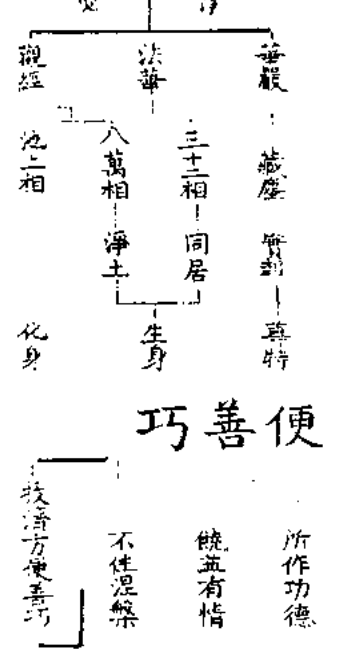 華嚴
藏塵
實報
尊特
法華
三十二相
同居
八萬相
淨土
生身
觀經
池上相
化身
便善巧
所作功德
饒益有情
不住涅槃
拔濟方便善巧